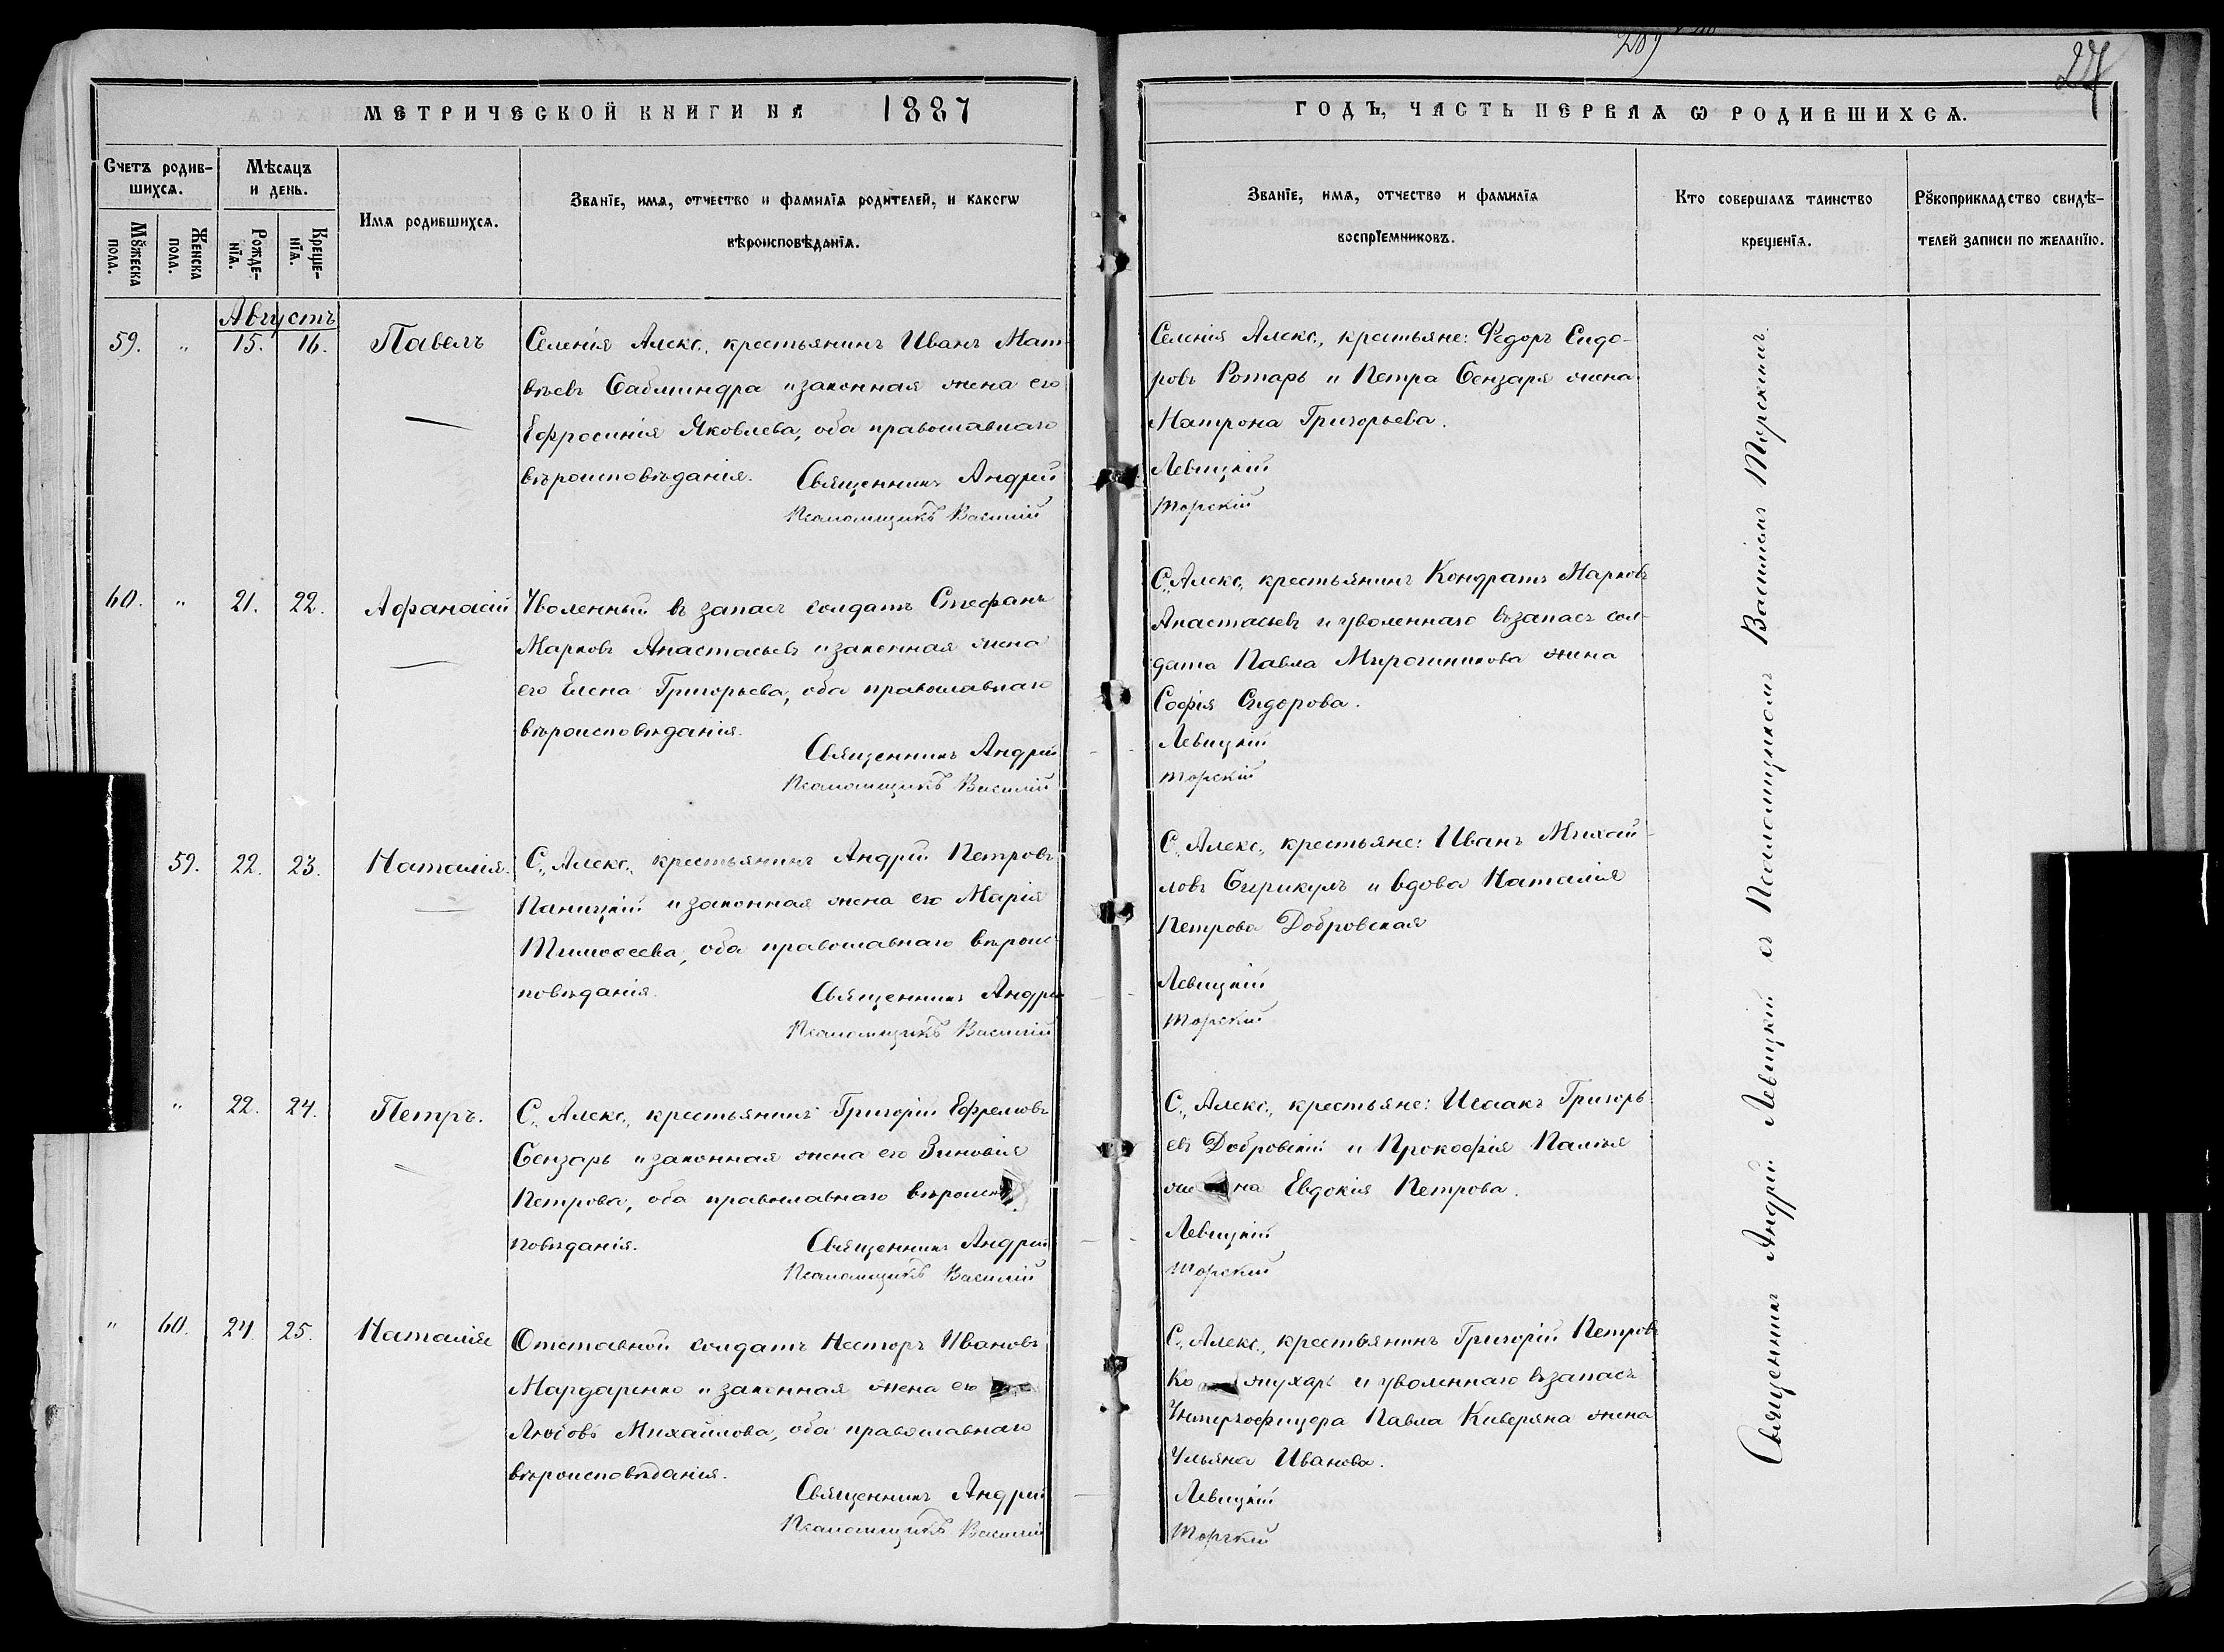 289
27
МЕТРИЧЕСКОЙ КНИГИ НА 1887
ГОДЪ, ЧАСТЬ ПЕРВАѦ Ѡ РОДИВШИХСѦ.
Счетъ родив-
шихсѧ.
Мѣсѧцъ
и день.
Мꙋжеска
пола.
Женска
пола.
Рожде-
нїѧ.
Креще-
нїѧ.
Имѧ родившихсѧ.
Званїе, имѧ, отчество и фамилїѧ родителей, и какогѡ
вѣроисповѣданїѧ.
Званїе, имѧ, отчество и фамилїѧ
воспрїемниковъ.
Кто совершалъ таинство
крещенїѧ.
Рꙋкоприкладство свидѣ-
телей записи по желанїю.
Августъ
59. " 15. 16. Павелъ
Селенія Алекс., крестьянинъ Иванъ Мат-
вѣевъ Сабминдра и законная жена его
Ефросинія Яковлева, оба православнаго
вѣроисповѣданія. Священникъ Андрей
Псаломщикъ Василій
Селенія Алекс., крестьяне: Федоръ Сидо-
ровъ Ротарь и Петра Бензаря жена
Матрона Григорьева.
Левицкій
Торскій
60. " 21. 22. Афанасій
Уволенный въ запасъ солдатъ Стефанъ
Марковъ Анастасьевъ и законная жена
его Елена Григорьева, оба православнаго
вѣроисповѣданія.
Священникъ Андрей
Псаломщикъ Василій
С., Алекс., крестьянинъ Кондратъ Марковъ
Анастасьевъ и уволеннаго въ запасъ сол-
дата Павла Мирошникова жена
Софія Сидорова.
Левицкій
Торскій
59. 22. 23. Наталія.
С., Алекс., крестьянинъ Андрей Петровъ
Паницкій и законная жена его Марія
Тимоѳеева, оба православнаго вѣроис-
повѣданія. Священникъ Андрей
Псаломщикъ Василій
С., Алекс., крестьяне: Иванъ Михай-
ловъ Бирикулъ и вдова Наталія
Петрова Добровская
Левицкій
Торскій
" 22. 24. Петръ.
С., Алекс., крестьянинъ Григорій Ефремовъ
Бензарь и законная жена его Зиновія
Петрова, оба православнаго вѣроис-
повѣданія. Священникъ Андрей
Псаломщикъ Василій
С., Алекс., крестьяне: Исаакъ Григорь-
евъ Добровскій и Прокофія Палія
жена Евдокія Петрова.
Левицкій
Торскій
" 60. 24. 25. Наталія
Отставной солдатъ Несторъ Ивановъ
Мардаренко и законная жена его
Любовь Михайлова, оба православнаго
вѣроисповѣданія.
Священникъ Андрей
Псаломщикъ Василій
С., Алекс., крестьянинъ Григорій Петровъ
Кожухарь и уволеннаго въ запасъ
Унтеръ-офицера Павла Киверяна жена
Ульяна Иванова.
Левицкій
Торскій
Священникъ Андрей Левицкій съ Псаломщикомъ Василіемъ Торскимъ